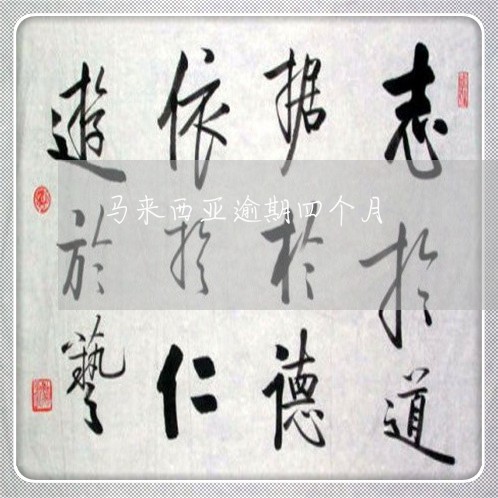 志於道
据於德
依於仁
遊於藝
马来西亚逾期四个月